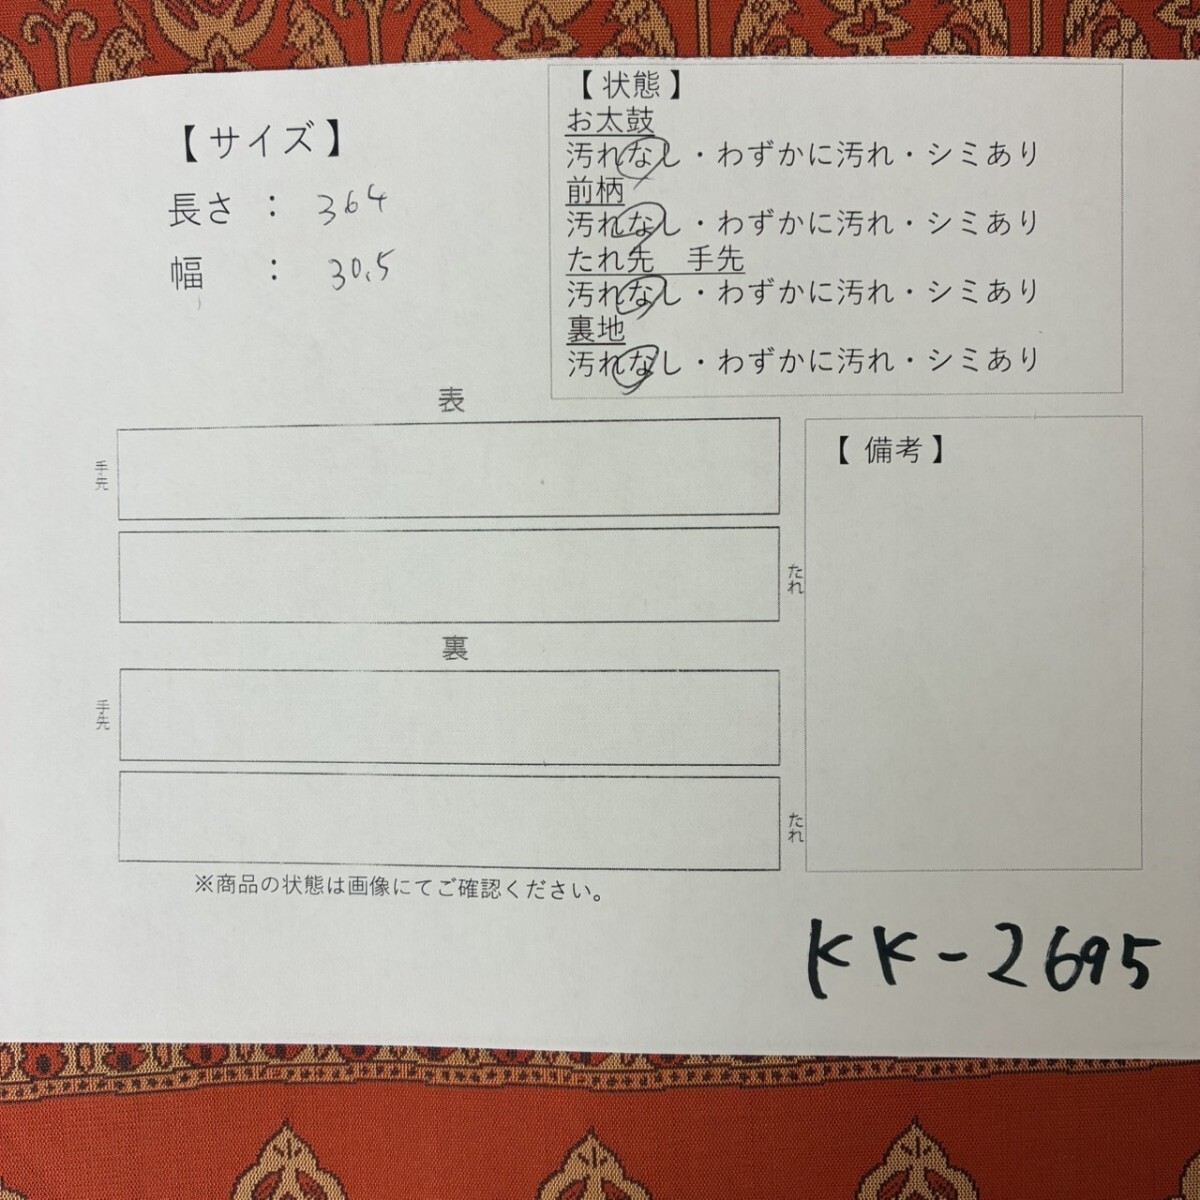 【サイズ】
長さ : 364
幅 : 30.5
【状態】
お太鼓
汚れなし・わずかに汚れ・シミあり
前柄
汚れなし・わずかに汚れ・シミあり
たれ先 手先
汚れなし・わずかに汚れ・シミあり
裏地
汚れなし・わずかに汚れ・シミあり
表
手先
たれ
裏
手先
たれ
【備考】
※商品の状態は画像にてご確認ください。
KK-2695